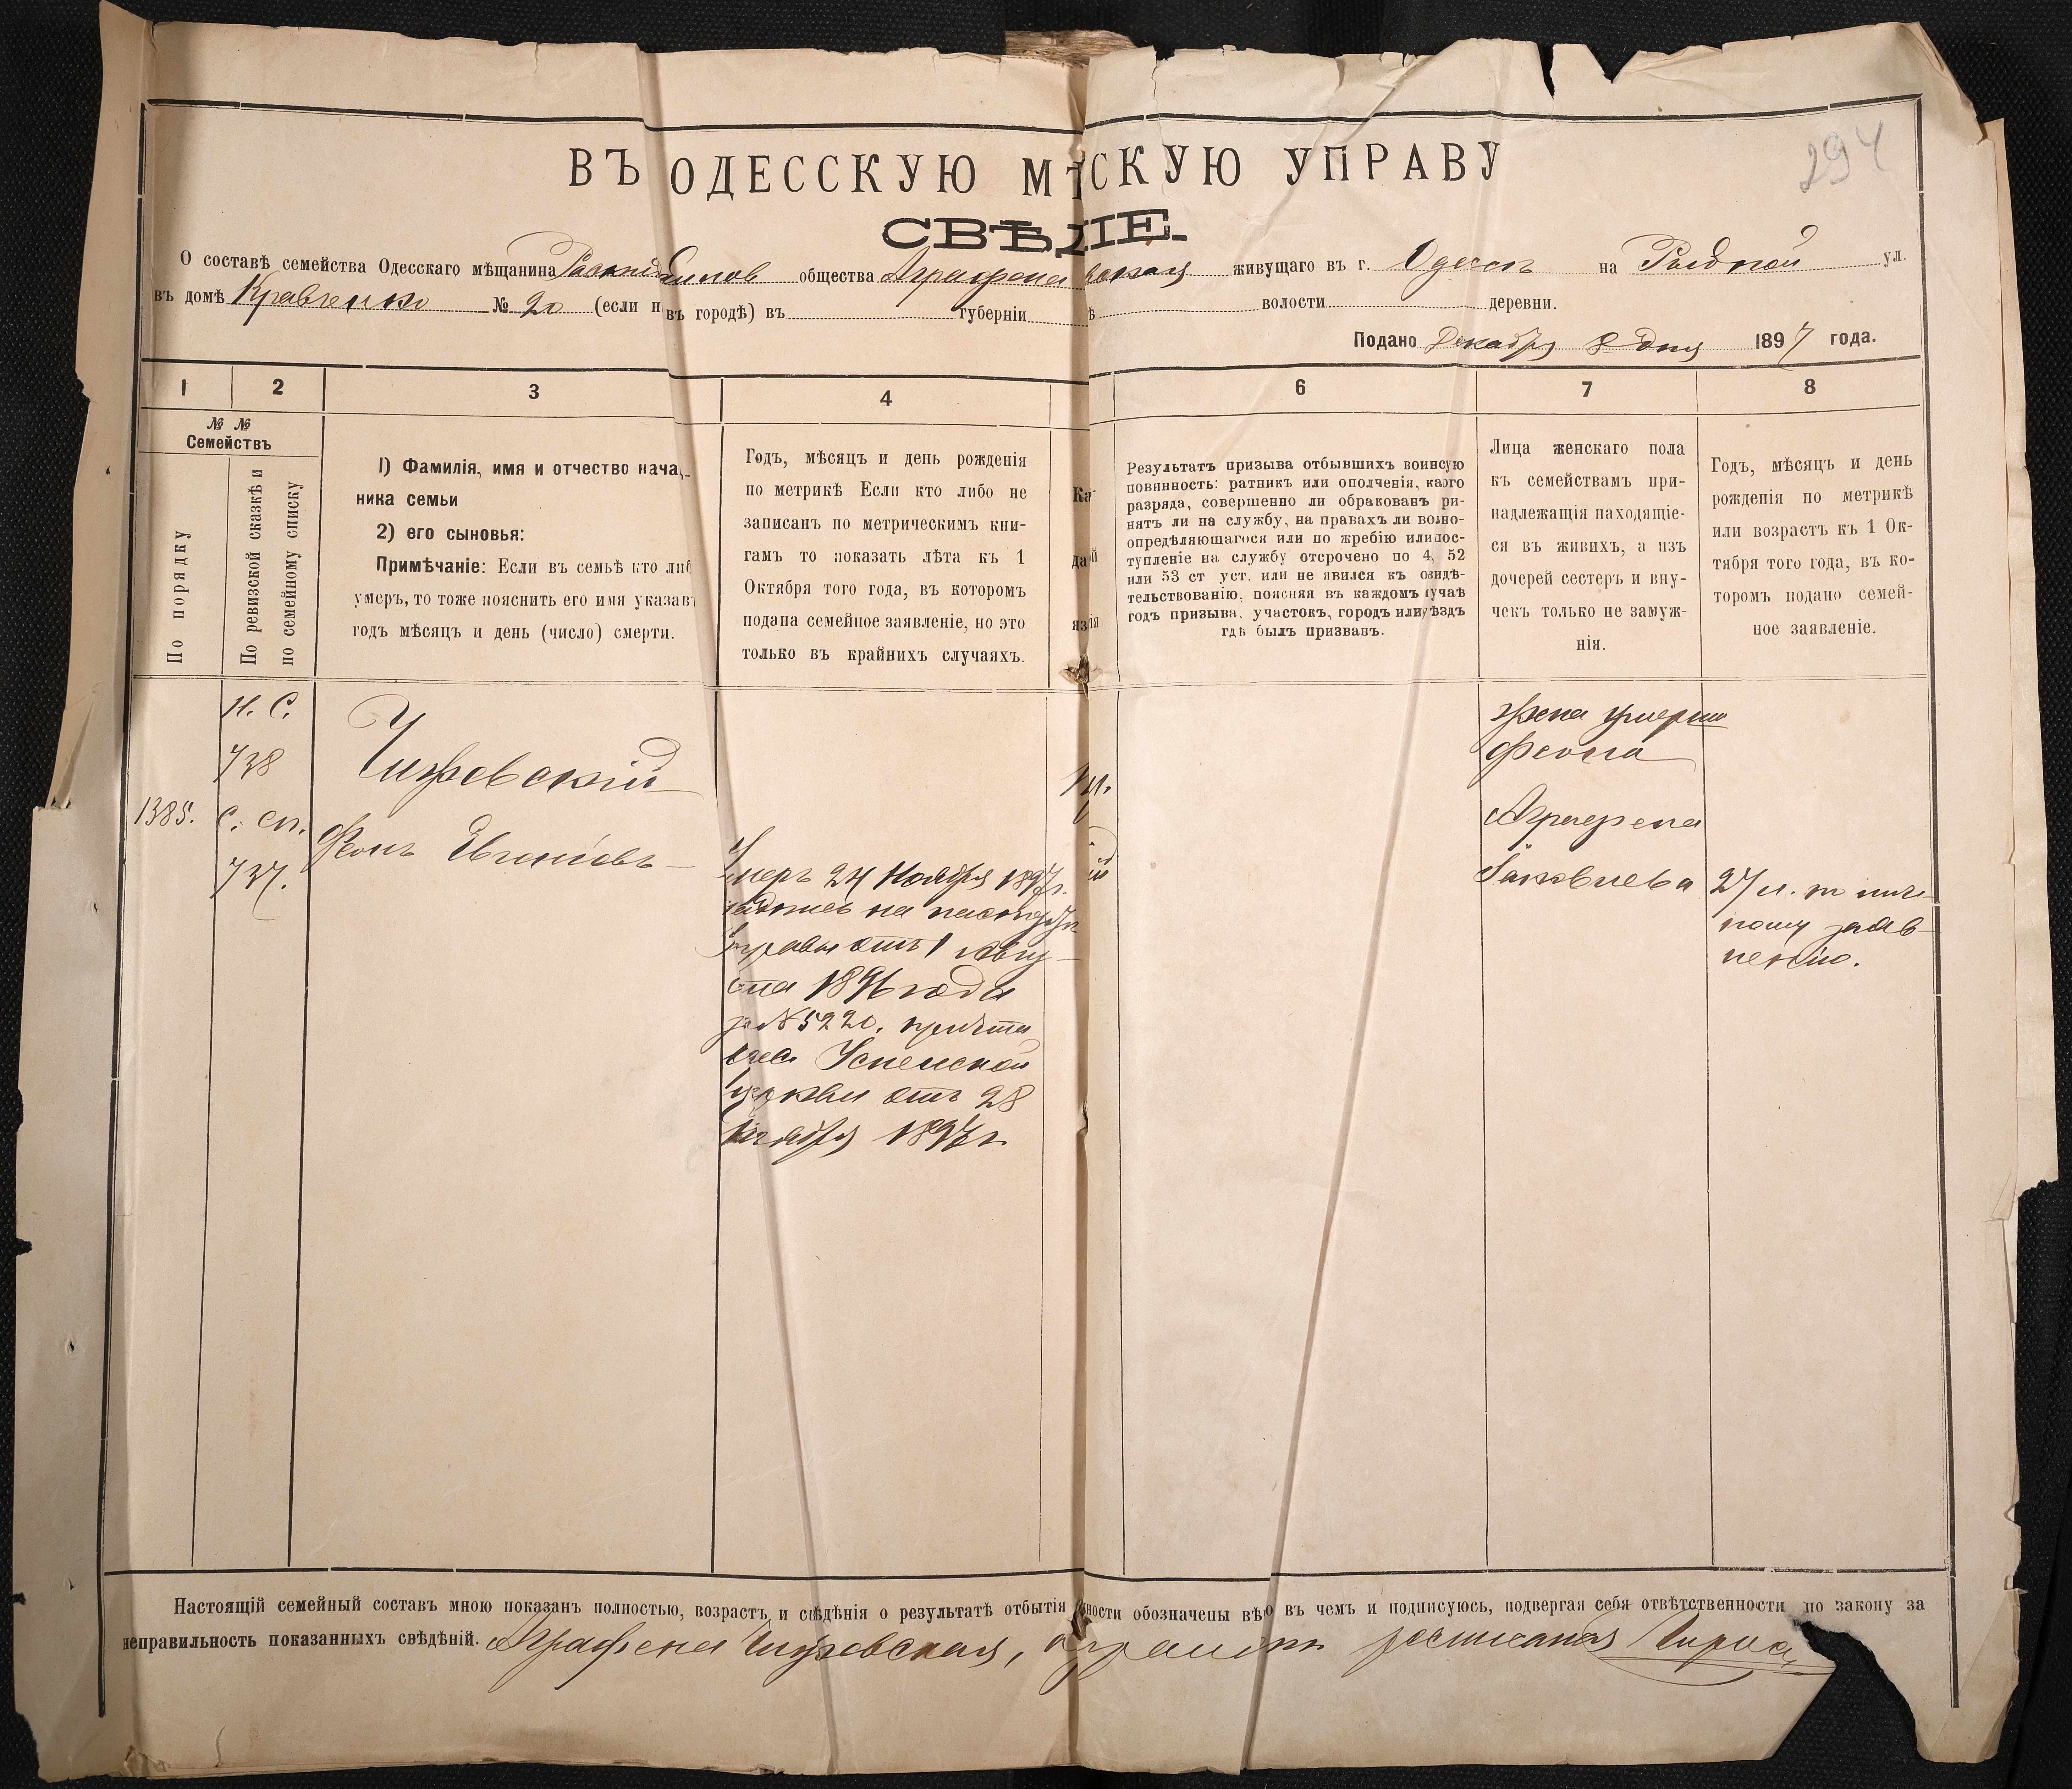 294
ВЪ ОДЕССКУЮ М СКУЮ УПРАВУ
СВѢ ІЕ.
О составѣ семейства Одесскаго мѣщанина общества Аграфена живущаго въ г. Одессѣ на Рыбной ул.
въ домѣ Кравченко № 20 (если н въ городѣ) въ губерніи волости деревни.
Подано Декабря 8 дня 1897 года.
1 2 3 4 6 7 8
№ №
Семействъ
По порядку
По ревизской сказкѣ и
по семейному списку
1) Фамилія, имя и отчество нача
ника семьи
2) его сыновья:
Примѣчаніе: Если въ семьѣ кто либ
умеръ, то тоже пояснить его имя указавъ
годъ мѣсяцъ и день (число) смерти.
Годъ, мѣсяцъ и день рожденія
по метрикѣ Если кто либо не
записанъ по метрическимъ кни-
гамъ то показать лѣта къ 1
Октября того года, въ которомъ
подана семейное заявленіе, но это
только въ крайнихъ случаяхъ.
Результатъ призыва отбывшихъ воинсую
повинность: ратникъ или ополченія, каэго
разряда, совершенно ли обракованъ ри-
нятъ ли на службу, на правахъ ли возно-
опредѣляющагося или по жребію илипос-
тупленіе на службу отсрочено по 4, 52
или 53 ст уст. или не явился къ озидѣ-
тельствованію, поясняя въ каждомъ учаѣ
годъ призыва. участокъ, городъ или ѣздъ
гдѣ былъ призванъ.
Лица женскаго пола
къ семействамъ при-
надлежащія находящіе-
ся въ живихъ, а изъ
дочерей сестеръ и вну-
чекъ только не замуж-
нія.
Годъ, мѣсяцъ и день
рожденія по метрикѣ
или возрастъ къ 1 Ок-
тября того года, въ ко-
торомъ подано семей-
ное заявленіе.
Н. С.
738
1385.
С. сп.
737.
Чижевскій
Феонъ Евгеніевъ
Умеръ 24 Ноября 1897г.
надпись на паспортѣ
Управы отъ 1 Авгу-
ста 1896 года
за № 5220. причта
Успенской
церкви отъ 28
Ноября 1897г.
жена умерш
Феона
Аграфена
Яковлева
27 л. по лич-
ному заяв-
ленію.
Настоящій семейный составъ мною показанъ полностью, возрастъ и свѣдѣнія о результатѣ отбытія ности обозначены вѣ о въ чемъ и подписуюсь, подвергая себя отвѣтственности по закону за
неправильность показанныхъ свѣдѣній. Аграфена Чижевская,